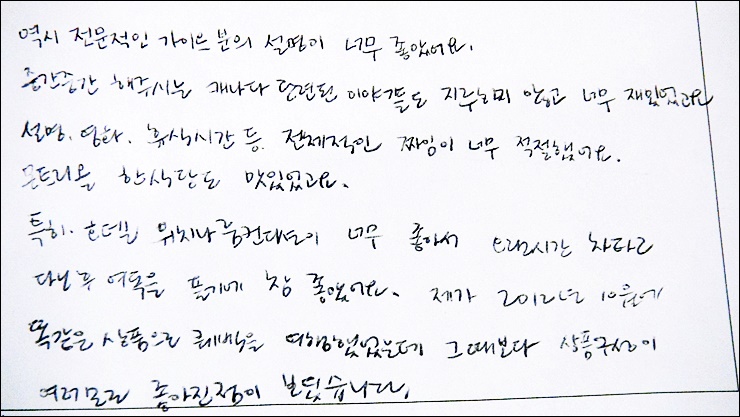 역시 전문적인 가이드 분의 설명이 너무 좋았어요.
중간중간 해주시는 캐나다 관련된 이야기들도 지루하지 않고 너무 재밌었고요
설명, 영화, 휴식시간 등 전체적인 짜임이 너무 적절했어요.
몬트리올 한식단도 맛있었고요.
특히, 호텔 위치나 룸컨디션이 너무 좋아서 오랜시간 차타고
다닌 후 여독을 풀기에 참 좋았어요. 제가 2012년 10월에
똑같은 상품으로 퀘백을 여행했었는데 그때보다 상품구성이
여러모로 좋아진점이 보였습니다.